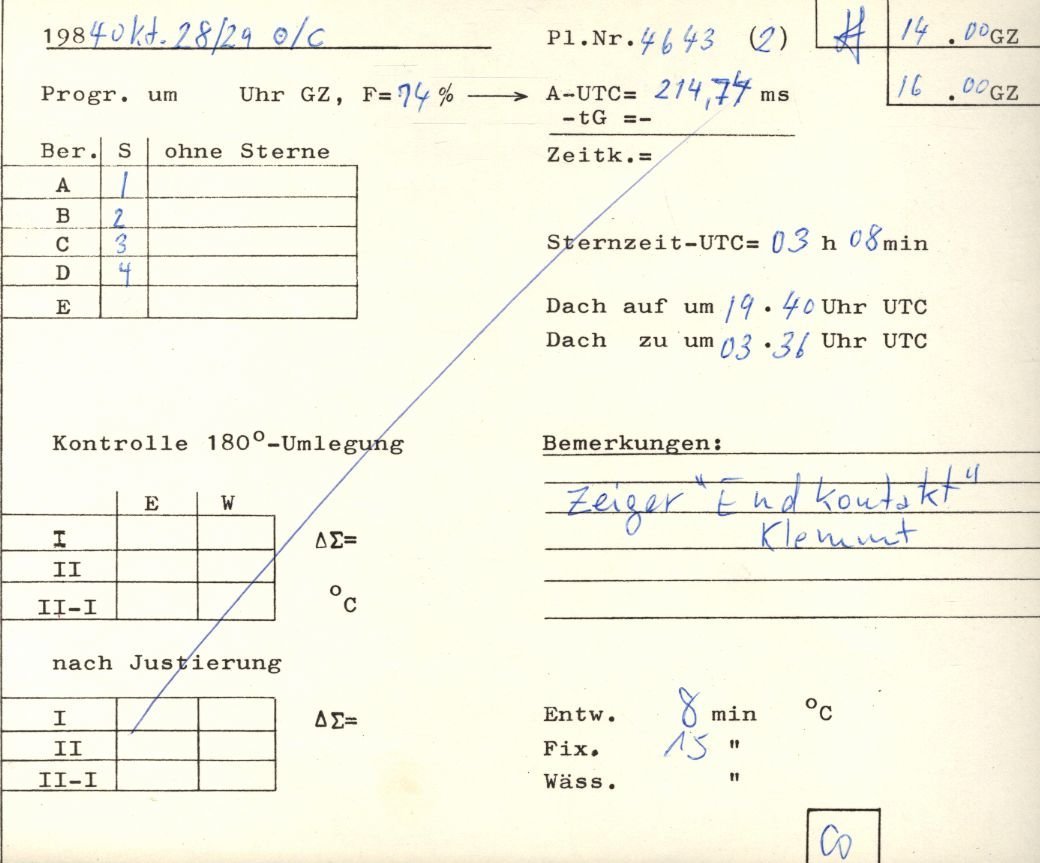 1984 Okt. 28/29 O/C
Pl.Nr. 4643 (2)
14 .00 GZ
Progr. um Uhr GZ, F= 74 % → A-UTC= 214,74 ms
16 .00 GZ
-tG =-
Zeitk.=
Ber. S ohne Sterne
A 1
B 2
C 3
D 4
E
Sternzeit-UTC= 03 h 08 min
Dach auf um 19 . 40 Uhr UTC
Dach zu um 03 . 36 Uhr UTC
Kontrolle 180°-Umlegung
E W
I ΔΣ=
II
II-I °C
Bemerkungen:
Zeiger "Endkontakt"
Klemmt
nach Justierung
I ΔΣ=
II
II-I
Entw. 8 min °C
Fix. 15 "
Wäss. "
Co